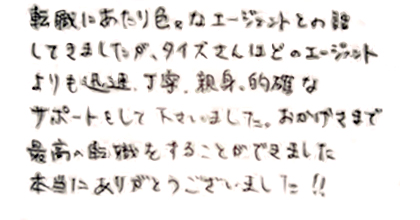 転職にあたり色々なエージェントとの話
してきましたが、タイズさんはどのエージェント
よりも迅速、丁寧、親身、的確な
サポートをして下さいました。おかげさまで
最高の転職をすることができました
本当にありがとうございました!!